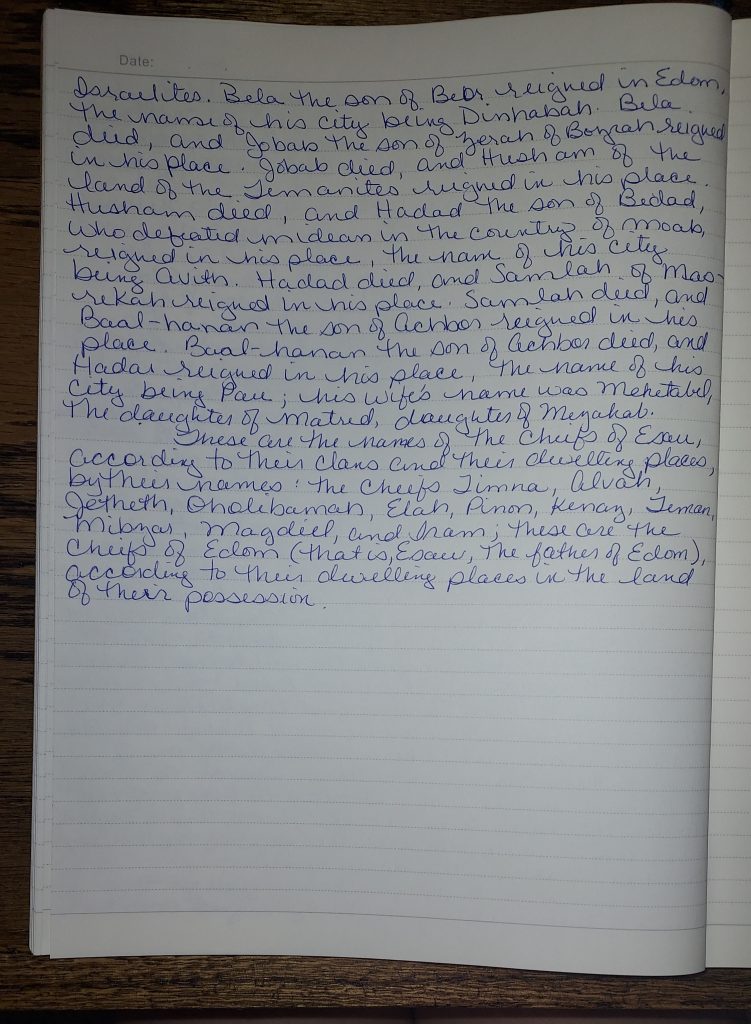 Date:
Israelites. Bela the son of Beor reigned in Edom,
the name of his city being Dinhabah. Bela
died, and Jobab the son of Zerah of Bozrah reigned
in his place. Jobab died, and Husham of the
land of the Temanites reigned in his place.
Husham died, and Hadad the son of Bedad,
who defeated Midean in the country of Moab,
reigned in his place, the nam of his city
being Avith. Hadad died, and Samlah of Mas-
rekah reigned in his place. Samlah died, and
Baal-hanan the son of Achbor reigned in his
place. Baal-hanan the son of Achbor died, and
Hadar reigned in his place, the name of his
city being Pau; his wife's name was Mehetabel,
the daughter of Matred, daughter of Mezahab.
These are the names of the cheifs of Esau,
according to their clans and their dwelling places,
by their names: the cheifs Timna, Alvah,
Jetheth, Oholibamah, Elah, Pinon, Kenaz, Teman,
Mibzar, Magdiel, and Iram; these are the
cheifs of Edom (that is, Esau, the father of Edom),
according to their dwelling places in the land
of their possession.